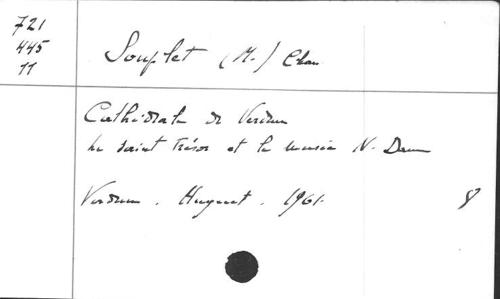 721
445
11
Souplet (M.) Chan
Cathédrale de Verdun
Le saint trésor et le musée N. Dame
Verdun. Huguet. 1961.
8